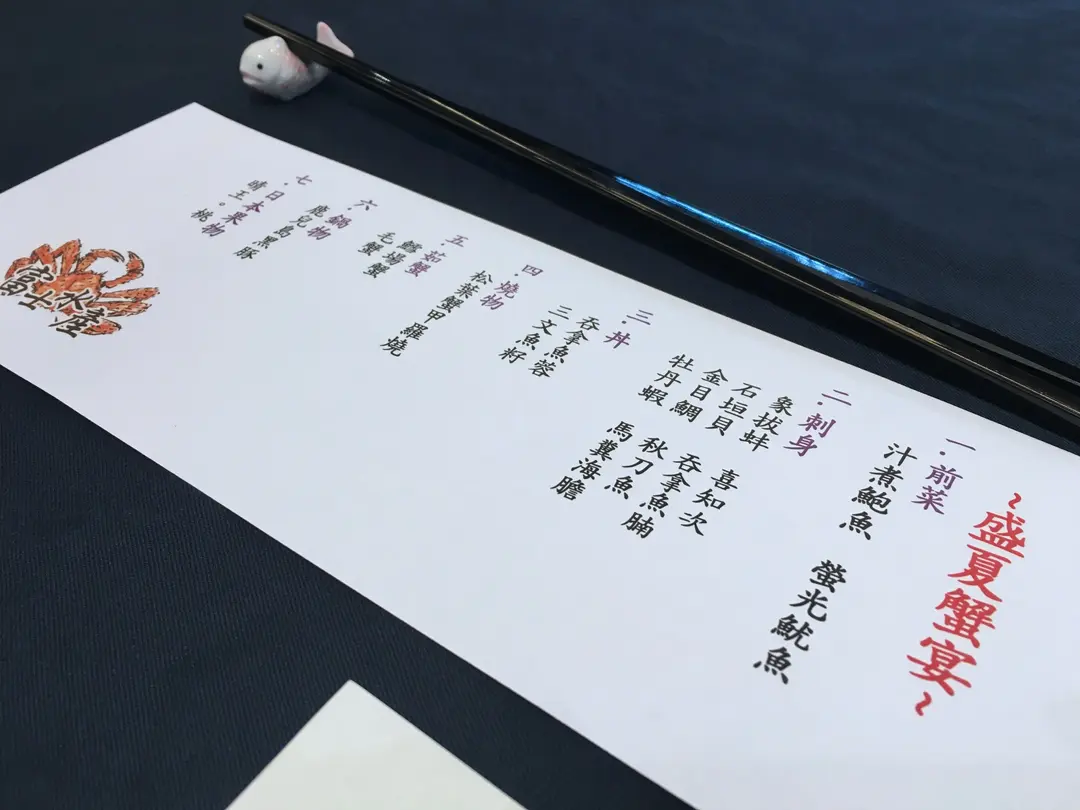 ~盛夏蟹宴~
一.前菜
汁煮鮑魚 螢光魷魚
二.刺身
象拔蚌 喜知次
石垣貝 吞拿魚腩
金目鯛 秋刀魚
牡丹蝦 馬糞海膽
三.丼
吞拿魚蓉
三文魚籽
四.燒物
松葉蟹甲羅燒
五.茹蟹
鱈場蟹
毛蟹
六.鍋物
鹿兒島黑豚
七.日本果物
晴王。桃
富士水産